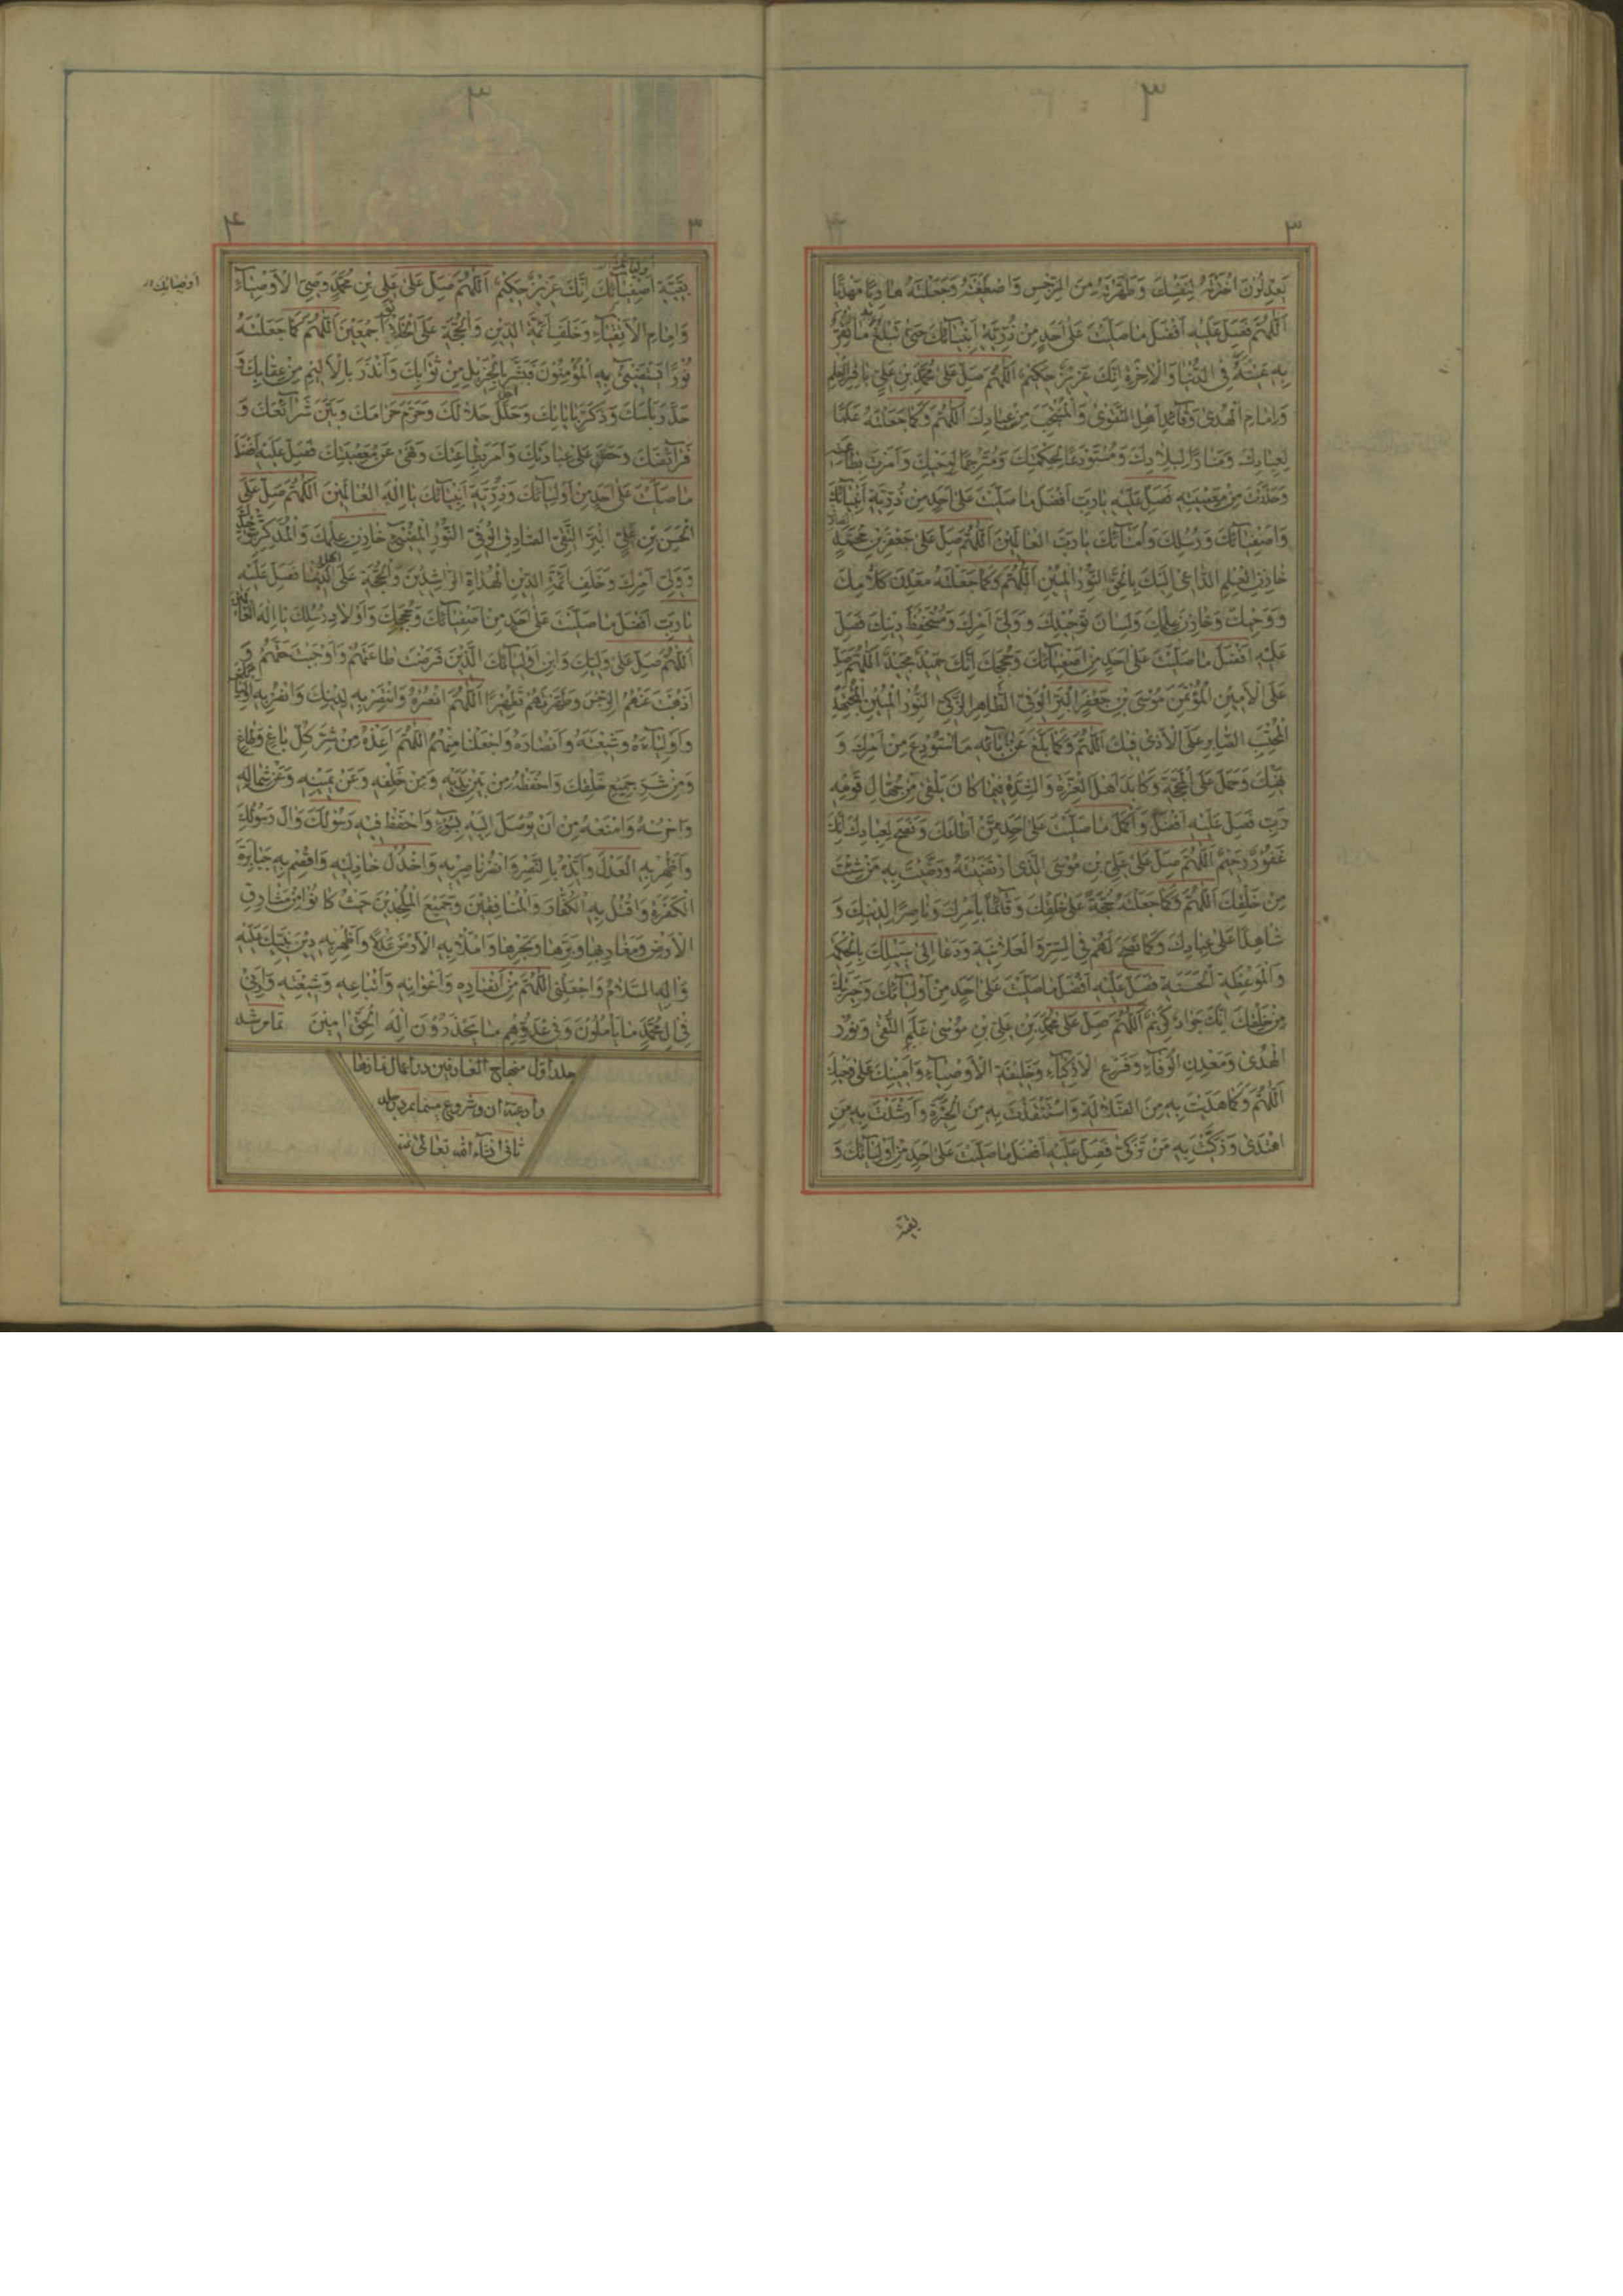 ٣
٣
يَعْدِلُونَ اخْتَرْتَهُ لِنَفْسِكَ وَطَهَّرْتَهُ مِنَ الرِّجْسِ وَاصْطَفَيْتَهُ وَجَعَلْتَهُ هَادِيًا مَهْدِيًّا
اَللّٰهُمَّ فَصَلِّ عَلَيْهِ اَفْضَلَ مَا صَلَّيْتَ عَلىٰ اَحَدٍ مِنْ ذُرِّيَّةِ اَنْبِيَائِكَ حَتّىٰ تَبْلُغَ مَا تَقَرُّ
بِهِ عَيْنُهُ فِي الدُّنْيَا وَالْاٰخِرَةِ اِنَّكَ عَزِيزٌ حَكِيمٌ اَللّٰهُمَّ صَلِّ عَلىٰ مُحَمَّدِ بْنِ عَلِيٍّ بَاقِرِ الْعِلْمِ
وَاِمَامِ الْهُدىٰ وَقَائِدِ اَهْلِ التَّقْوىٰ وَالْمُنْتَجَبِ مِنْ عِبَادِكَ اَللّٰهُمَّ وَكَمَا جَعَلْتَهُ عَلَمًا
لِعِبَادِكَ وَمَنَارًا لِبِلَادِكَ وَمُسْتَوْدَعًا لِحِكْمَتِكَ وَمُتَرْجِمًا لِوَحْيِكَ وَاَمَرْتَ بِطَاعَتِهِ
وَحَذَّرْتَ مِنْ مَعْصِيَتِهِ فَصَلِّ عَلَيْهِ يَا رَبِّ اَفْضَلَ مَا صَلَّيْتَ عَلىٰ اَحَدٍ مِنْ ذُرِّيَّةِ اَنْبِيَائِكَ
وَاَصْفِيَائِكَ وَرُسُلِكَ وَاُمَنَائِكَ يَا رَبَّ الْعَالَمِينَ اَللّٰهُمَّ صَلِّ عَلىٰ جَعْفَرِ بْنِ مُحَمَّدٍ الصَّادِقِ
خَازِنِ الْعِلْمِ الدَّاعِي اِلَيْكَ بِالْحَقِّ النُّورِ الْمُبِينِ اَللّٰهُمَّ وَكَمَا جَعَلْتَهُ مَعْدِنَ كَلَامِكَ
وَوَحْيِكَ وَخَازِنَ عِلْمِكَ وَلِسَانَ تَوْحِيدِكَ وَوَلِيَّ اَمْرِكَ وَمُسْتَحْفِظَ دِينِكَ فَصَلِّ
عَلَيْهِ اَفْضَلَ مَا صَلَّيْتَ عَلىٰ اَحَدٍ مِنْ اَصْفِيَائِكَ وَحُجَجِكَ اِنَّكَ حَمِيدٌ مَجِيدٌ اَللّٰهُمَّ صَلِّ
عَلَى الْاَمِينِ الْمُؤْتَمَنِ مُوسَى بْنِ جَعْفَرٍ الْبَرِّ الْوَفِيِّ الطَّاهِرِ الزَّكِيِّ النُّورِ الْمُبِينِ الْمُجْتَهِدِ
الْمُحْتَسِبِ الصَّابِرِ عَلَى الْاَذىٰ فِيكَ اَللّٰهُمَّ وَكَمَا بَلَّغَ عَنْ اٰبَائِهِ مَا اسْتُوْدِعَ مِنْ اَمْرِكَ وَ
نَهْيِكَ وَحَمَلَ عَلَى الْمَحَجَّةِ وَكَابَدَ اَهْلَ الْعِزَّةِ وَالشِّدَّةِ فِيمَا كَانَ يَلْقىٰ مِنْ جُهَّالِ قَوْمِهِ
رَبِّ فَصَلِّ عَلَيْهِ اَفْضَلَ وَاَكْمَلَ مَا صَلَّيْتَ عَلىٰ اَحَدٍ مِمَّنْ اَطَاعَكَ وَنَصَحَ لِعِبَادِكَ اِنَّكَ
غَفُورٌ رَحِيمٌ اَللّٰهُمَّ صَلِّ عَلىٰ عَلِيِّ بْنِ مُوسَى الَّذِي ارْتَضَيْتَهُ وَرَضَّيْتَ بِهِ مَنْ شِئْتَ
مِنْ خَلْقِكَ اَللّٰهُمَّ وَكَمَا جَعَلْتَهُ حُجَّةً عَلىٰ خَلْقِكَ وَقَائِمًا بِاَمْرِكَ وَنَاصِرًا لِدِينِكَ وَ
شَاهِدًا عَلىٰ عِبَادِكَ وَكَمَا نَصَحَ لَهُمْ فِي السِّرِّ وَالْعَلَانِيَةِ وَدَعَا اِلىٰ سَبِيلِكَ بِالْحِكْمَةِ
وَالْمَوْعِظَةِ الْحَسَنَةِ فَصَلِّ عَلَيْهِ اَفْضَلَ مَا صَلَّيْتَ عَلىٰ اَحَدٍ مِنْ اَوْلِيَائِكَ وَخِيَرَتِكَ
مِنْ خَلْقِكَ اِنَّكَ جَوَادٌ كَرِيمٌ اَللّٰهُمَّ صَلِّ عَلىٰ مُحَمَّدِ بْنِ عَلِيِّ بْنِ مُوسىٰ عَلَمِ التُّقىٰ وَنُورِ
الْهُدىٰ وَمَعْدِنِ الْوَفَاءِ وَفَرْعِ الْاَزْكِيَاءِ وَخَلِيفَةِ الْاَوْصِيَاءِ وَاَمِينِكَ عَلىٰ وَحْيِكَ
اَللّٰهُمَّ وَكَمَا هَدَيْتَ بِهِ مِنَ الضَّلَالَةِ وَاسْتَنْقَذْتَ بِهِ مِنَ الْحَيْرَةِ وَاَرْشَدْتَ بِهِ مَنِ
اهْتَدىٰ وَزَكَّيْتَ بِهِ مَنْ تَزَكّىٰ فَصَلِّ عَلَيْهِ اَفْضَلَ مَا صَلَّيْتَ عَلىٰ اَحَدٍ مِنْ اَوْلِيَائِكَ وَ
بقية
٣
٣
٤
اوليائك
بَقِيَّةِ اَصْفِيَائِكَ اِنَّكَ عَزِيزٌ حَكِيمٌ اَللّٰهُمَّ صَلِّ عَلىٰ عَلِيِّ بْنِ مُحَمَّدٍ وَصِيِّ الْاَوْصِيَاءِ
اوصيائك
وَاِمَامِ الْاَتْقِيَاءِ وَخَلَفِ اَئِمَّةِ الدِّينِ وَالْحُجَّةِ عَلَى الْخَلَائِقِ اَجْمَعِينَ اَللّٰهُمَّ كَمَا جَعَلْتَهُ
نُورًا يَسْتَضِيئُ بِهِ الْمُؤْمِنُونَ فَبَشَّرَ بِالْجَزِيلِ مِنْ ثَوَابِكَ وَاَنْذَرَ بِالْاَلِيمِ مِنْ عِقَابِكَ وَ
حَذَّرَ بَأْسَكَ وَذَكَّرَ بِاٰيَاتِكَ وَحَلَّلَ حَلَالَكَ وَحَرَّمَ حَرَامَكَ وَبَيَّنَ شَرَائِعَكَ وَ
فَرَائِضَكَ وَحَضَّ عَلىٰ عِبَادَتِكَ وَاَمَرَ بِطَاعَتِكَ وَنَهىٰ عَنْ مَعْصِيَتِكَ فَصَلِّ عَلَيْهِ اَفْضَلَ
مَا صَلَّيْتَ عَلىٰ اَحَدٍ مِنْ اَوْلِيَائِكَ وَذُرِّيَّةِ اَنْبِيَائِكَ يَا اِلٰهَ الْعَالَمِينَ اَللّٰهُمَّ صَلِّ عَلَى
الْحَسَنِ بْنِ عَلِيٍّ الْبَرِّ التَّقِيِّ الصَّادِقِ الْوَفِيِّ النُّورِ الْمُضِيْءِ خَازِنِ عِلْمِكَ وَالْمُذَكِّرِ بِتَوْحِيدِكَ
وَوَلِيِّ اَمْرِكَ وَخَلَفِ اَئِمَّةِ الدِّينِ الْهُدَاةِ الرَّاشِدِينَ وَالْحُجَّةِ عَلىٰ اَهْلِ الدُّنْيَا فَصَلِّ عَلَيْهِ
يَا رَبِّ اَفْضَلَ مَا صَلَّيْتَ عَلىٰ اَحَدٍ مِنْ اَصْفِيَائِكَ وَحُجَجِكَ وَاَوْلَادِ رُسُلِكَ يَا اِلٰهَ الْعَالَمِينَ
اَللّٰهُمَّ صَلِّ عَلىٰ وَلِيِّكَ وَابْنِ اَوْلِيَائِكَ الَّذِينَ فَرَضْتَ طَاعَتَهُمْ وَاَوْجَبْتَ حَقَّهُمْ وَ
اَذْهَبْتَ عَنْهُمُ الرِّجْسَ وَطَهَّرْتَهُمْ تَطْهِيرًا اَللّٰهُمَّ انْصُرْهُ وَانْتَصِرْ بِهِ لِدِينِكَ وَانْصُرْ بِهِ اَوْلِيَاءَكَ
وَاَوْلِيَاءَهُ وَشِيعَتَهُ وَاَنْصَارَهُ وَاجْعَلْنَا مِنْهُمْ اَللّٰهُمَّ اَعِذْهُ مِنْ شَرِّ كُلِّ بَاغٍ وَطَاغٍ
وَمِنْ شَرِّ جَمِيعِ خَلْقِكَ وَاحْفَظْهُ مِنْ بَيْنِ يَدَيْهِ وَمِنْ خَلْفِهِ وَعَنْ يَمِينِهِ وَعَنْ شِمَالِهِ
وَاحْرُسْهُ وَامْنَعْهُ مِنْ اَنْ يُوصَلَ اِلَيْهِ بِسُوءٍ وَاحْفَظْ فِيهِ رَسُولَكَ وَاٰلَ رَسُولِكَ
وَاَظْهِرْ بِهِ الْعَدْلَ وَاَيِّدْهُ بِالنَّصْرِ وَانْصُرْ نَاصِرِيهِ وَاخْذُلْ خَاذِلِيهِ وَاقْصِمْ بِهِ جَبَابِرَةَ
الْكَفَرَةِ وَاقْتُلْ بِهِ الْكُفَّارَ وَالْمُنَافِقِينَ وَجَمِيعَ الْمُلْحِدِينَ حَيْثُ كَانُوا مِنْ مَشَارِقِ
الْاَرْضِ وَمَغَارِبِهَا وَبَرِّهَا وَبَحْرِهَا وَامْلَأْ بِهِ الْاَرْضَ عَدْلًا وَاَظْهِرْ بِهِ دِينَ نَبِيِّكَ عَلَيْهِ
وَاٰلِهِ السَّلَامُ وَاجْعَلْنِي اَللّٰهُمَّ مِنْ اَنْصَارِهِ وَاَعْوَانِهِ وَاَتْبَاعِهِ وَشِيعَتِهِ وَاَرِنِي
فِي اٰلِ مُحَمَّدٍ مَا يَأْمُلُونَ وَفِي عَدُوِّهِمْ مَا يَحْذَرُونَ اِلٰهَ الْحَقِّ اٰمِينَ تمام شد
جلد اول منهاج العارفين در اعمال نمازها
وادعيه آن و شروع مينمايد در جلد
ثانى انشاء الله تعالى